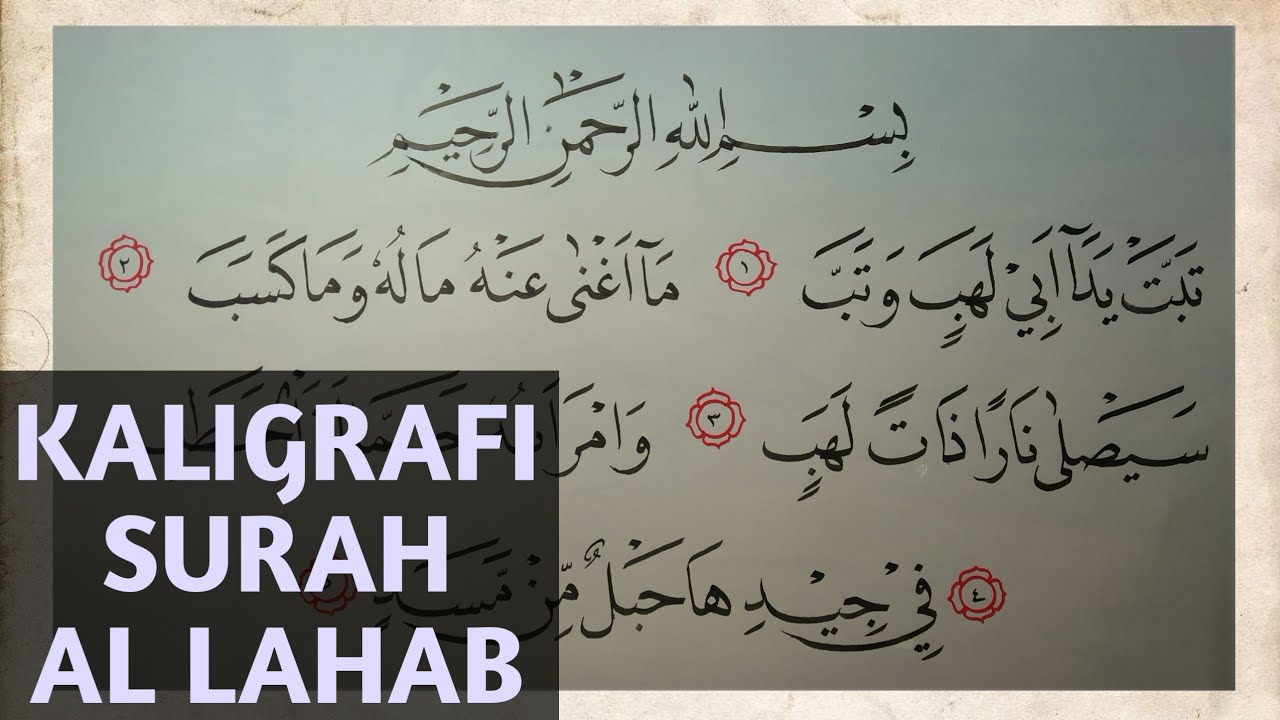 بِسْمِ اللهِ الرَّحْمٰنِ الرَّحِيْمِ
تَبَّتْ يَدَآ اَبِيْ لَهَبٍ وَتَبَّ ١ مَآ اَغْنٰى عَنْهُ مَالُهٗ وَمَا كَسَبَ ٢
سَيَصْلٰى نَارًا ذَاتَ لَهَبٍ ٣ وَامْرَاَتُهٗ حَمَّالَةَ الْحَطَبِ
٤ فِيْ جِيْدِهَا حَبْلٌ مِّنْ مَّسَدٍ ٥
KALIGRAFI
SURAH
AL LAHAB